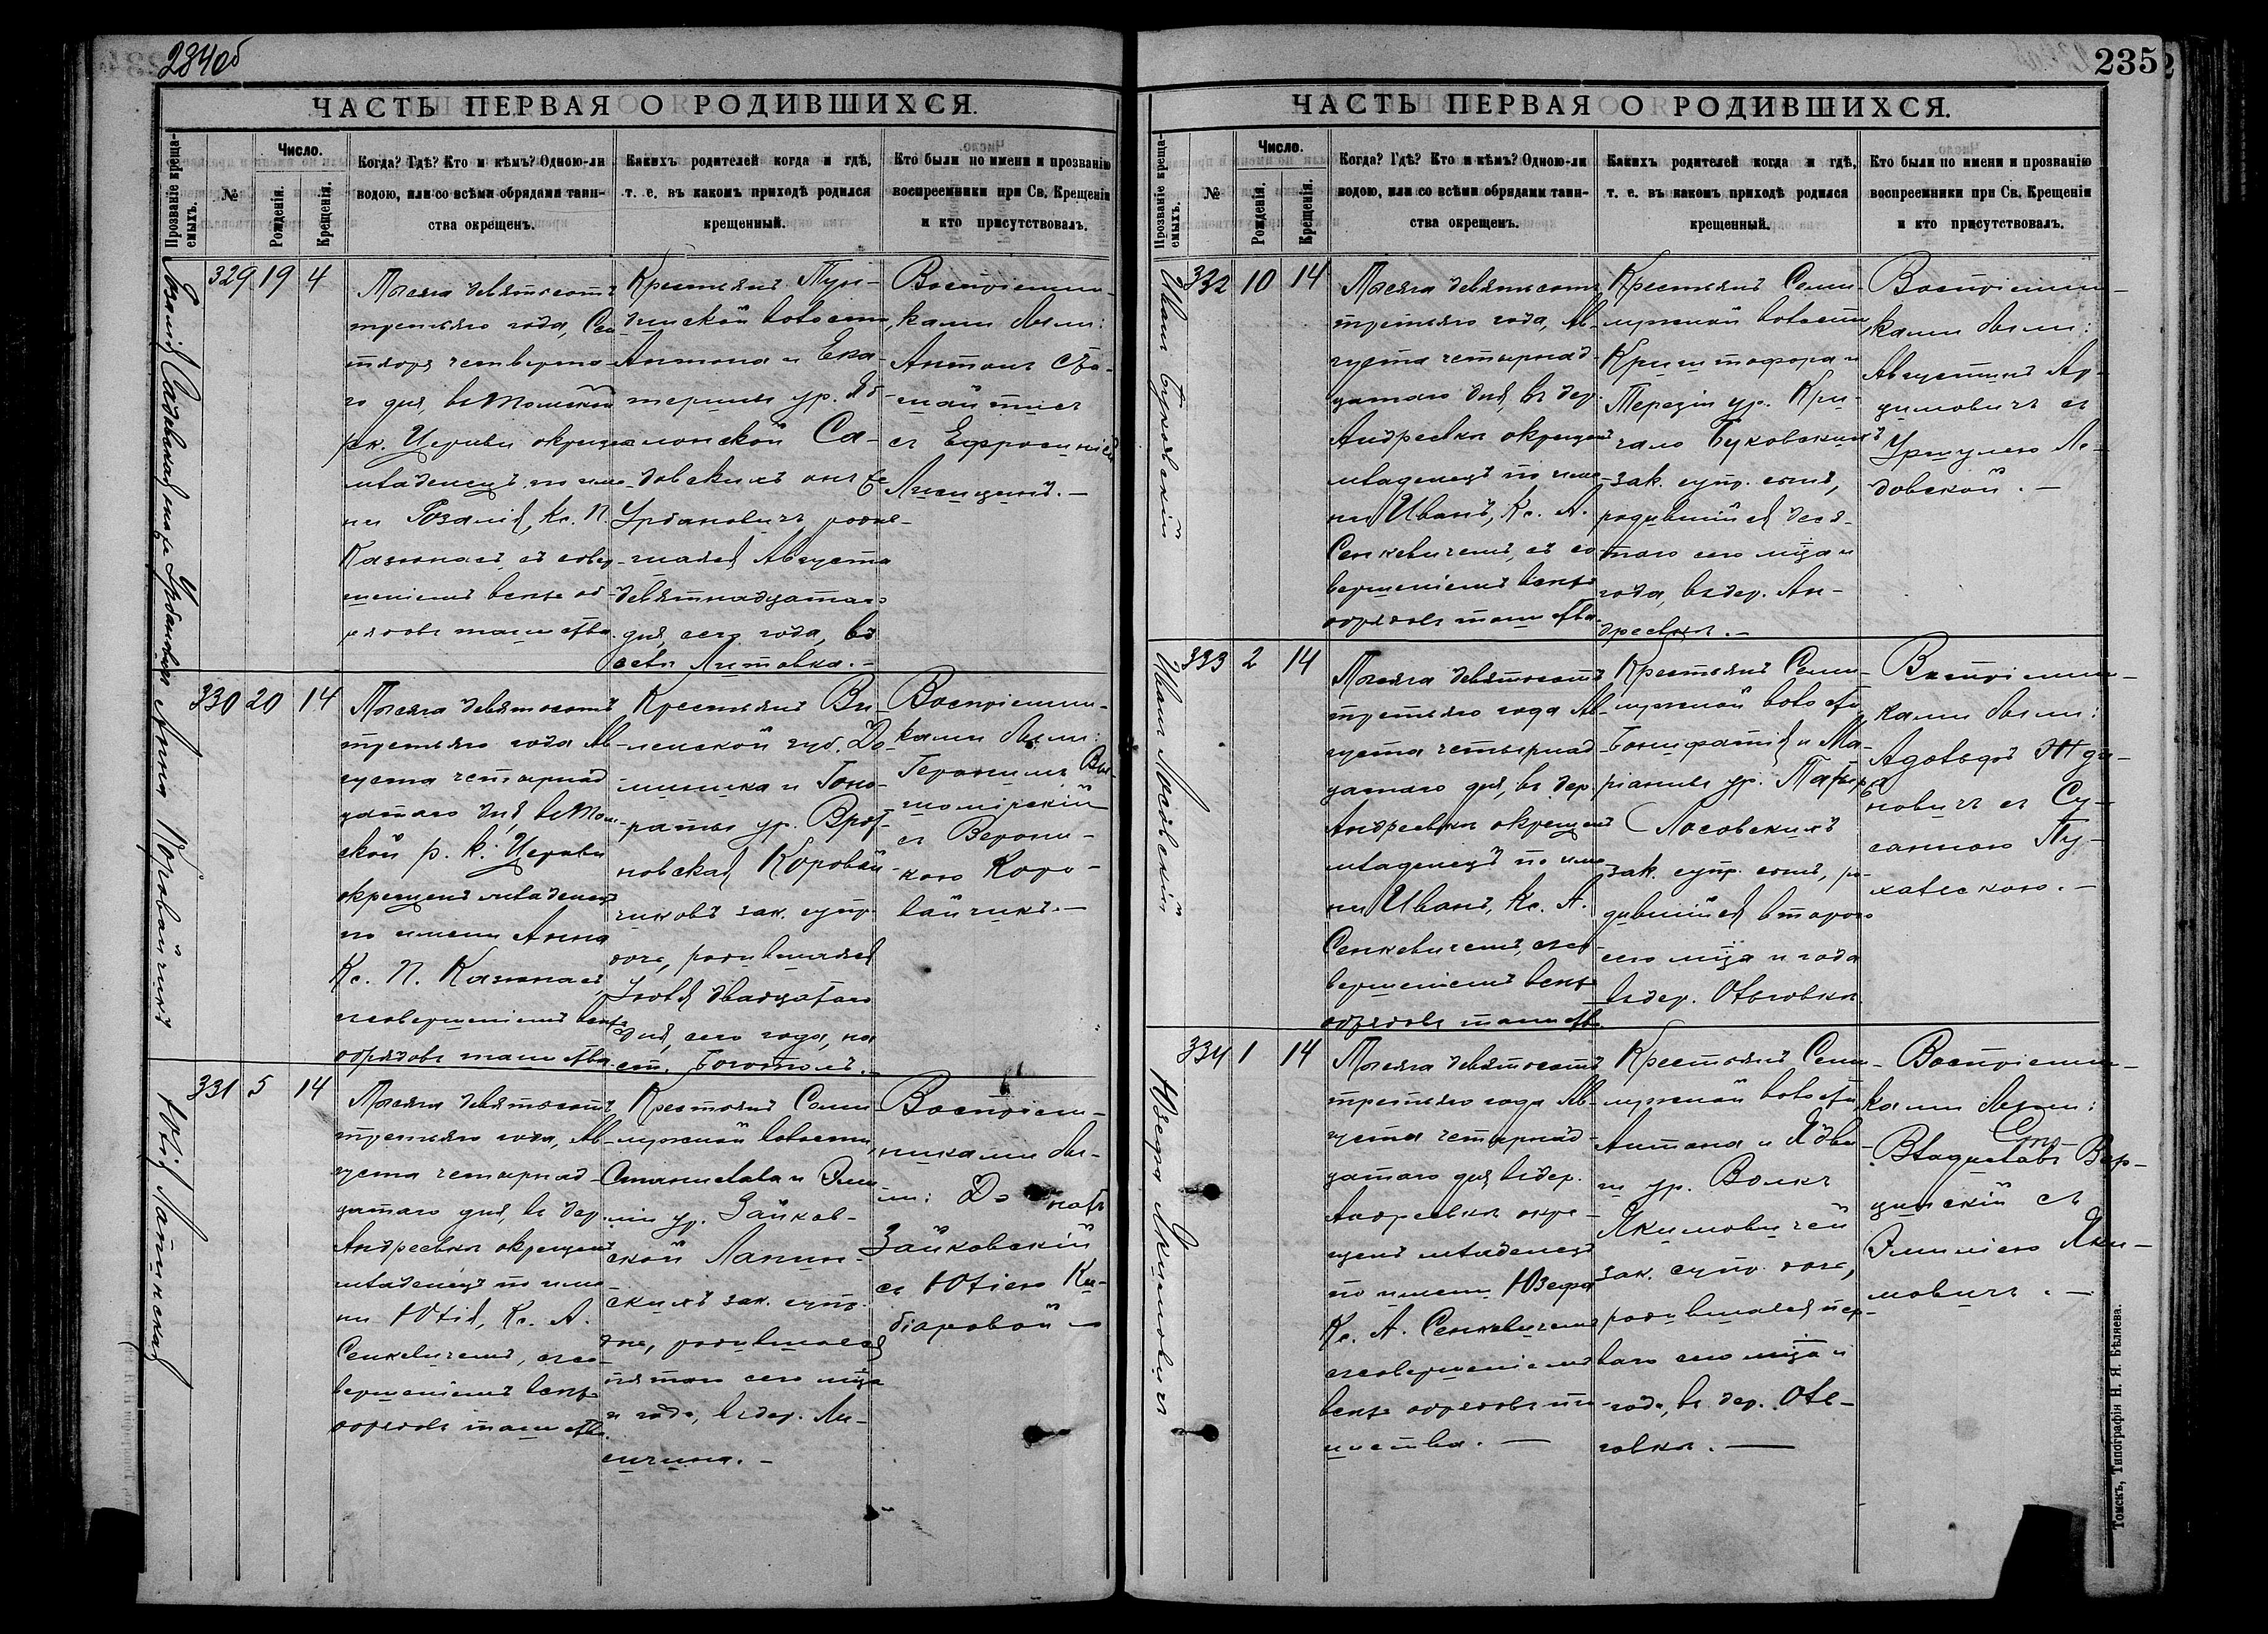 234об
ЧАСТЬ ПЕРВАЯ О РОДИВШИХСЯ.
Прозваніе крещаемыхъ.
№
Число.
Рожденія.
Крещенія.
Когда? Гдѣ? Кто и кѣмъ? Одною-ли
водою, или со всѣми обрядами таин-
ства окрещенъ.
Какихъ родителей когда и гдѣ,
т. е. въ какомъ приходѣ родился
крещенный.
Кто были по имени и прозванію
воспреемники при Св. Крещеніи
и кто присутствовалъ.
Розалія Садовская она же Урбановичъ
329 19 4
Тысяча девятьсотъ
третьяго года, Сен
тября четверта-
го дня, въ Томской
рк. Церкви окрещенъ
младенецъ по име-
ни Розалія, Кс. П.
съ совер-
шеніемъ всѣхъ об-
рядовъ таинства.
Крестьянъ
волости
Антона и Ека-
терины ур.
Са-
довскихъ они же
Урбановичъ, роди-
шаяся Августа
девятнадцатаго
дня, сего года, въ
селѣ Литовка.-
Воспріемни-
ками были:
Антонъ
съ Ефросиніей
Анна Коровайчикъ
330 20 14
Тысяча девятьсотъ
третьяго года Ав-
густа четырнад
цатаго дня, въ Том
ской р. к. Церкви
окрещенъ младенецъ
по имени Анна
Кс. П.
съ совершеніемъ всѣхъ
обрядовъ таинства.
Крестьянъ Ви-
ленской губ. До-
миника и Гоно-
раты ур.
Коровай-
чиковъ зак. супр.
дочь, родившаяся
Іюля двадцатаго
дня, сего года, на
ст. Боготолъ.-
Воспріемни-
ками были:
Геронимъ
съ Верони-
кою Коро-
вайчикъ.-
Юлія Лапинская
331 5 14
Тысяча девятьсотъ
третьяго года, Ав-
густа четырнад-
цатаго дня, въ дер.
Андреевкѣ окрещенъ
младенецъ по име
ни Юлія, Кс. А.
Сенкевичемъ, съ со-
вершеніемъ всѣхъ
обрядовъ таинства.
Крестьянъ Семи
лужной волости,
Станислава и Эми
ліи ур. Зайков-
ской Лапин-
скихъ зак. супр.
дочь, родившаяся
пятаго сего мѣсца
и года, въ дер. Ли-
сичина.-
Воспріем-
никами бы-
ли: Донатъ
Зайковскій
съ Юліею
235
ЧАСТЬ ПЕРВАЯ О РОДИВШИХСЯ.
Прозваніе крещаемыхъ.
№
Число.
Рожденія.
Крещенія.
Когда? Гдѣ? Кто и кѣмъ? Одною-ли
водою, или со всѣми обрядами таин-
ства окрещенъ.
Какихъ родителей когда и гдѣ,
т. е. въ какомъ приходѣ родился
крещенный.
Кто были по имени и прозванію
воспреемники при Св. Крещеніи
и кто присутствовалъ.
Иванъ Буковскій
332 10 14
Тысяча девятьсотъ
третьяго года, Ав-
густа четырнад-
цатаго дня, въ дер.
Андреевкѣ окрещенъ
младенецъ по име-
ни Иванъ, Кс. А.
Сенкевичемъ, съ со
вершеніемъ всѣхъ
обрядовъ таинства.
Крестьянъ Семи-
лужной волости
Криштофора и
Терезіи ур. Кри-
чало Буковскихъ
зак. супр. сынъ,
родившійся деся-
таго сего мѣсца и
года, въ дер. Ан-
дреевкѣ.-
Воспріемни-
ками были:
Августинъ
съ
Уршулею
Иванъ Лосовскій
333 2 14
Тысяча девятьсотъ
третьяго года Ав-
густа четырнад
цатаго дня, въ дер
Андреевкѣ окрещенъ
младенецъ по име
ни Иванъ, Кс. А.
Сенкевичемъ, съ со-
вершеніемъ всѣхъ
обрядовъ таинства
Крестьянъ Семи-
лужной волости,
Бонифатія и Ма-
ріанны ур.
Лосовскихъ
зак. супр. сынъ, ро-
дившійся второго
сего мѣсца и года
въ дер. Ольговкѣ.
Воспріемни-
ками были:
Адольфъ Жда-
новичъ съ Су-
санною Пу-
хальскою.-
Юзефа Якимовичъ
334 1 14
Тысяча девятьсотъ
третьяго года Ав-
густа четырнад-
цатаго дня въ дер.
Андреевкѣ окре-
щенъ младенецъ
по имени Юзефа
Кс. А. Сенкевичемъ
съ совершеніемъ
всѣхъ обрядовъ та-
инства.-
Крестьянъ Семи-
лужной волости
Антона и Ядви-
ги ур. Волкъ
Якимовичей
зак. супр. дочь,
родившаяся пер-
ваго сего мѣсца и
года, въ дер. Оль-
говкѣ.-
Воспріемни-
ками были:
Владиславъ
съ
Эмиліею Яки-
мовичъ.-
Томскъ, Типографія Н. Я. Бѣляева.